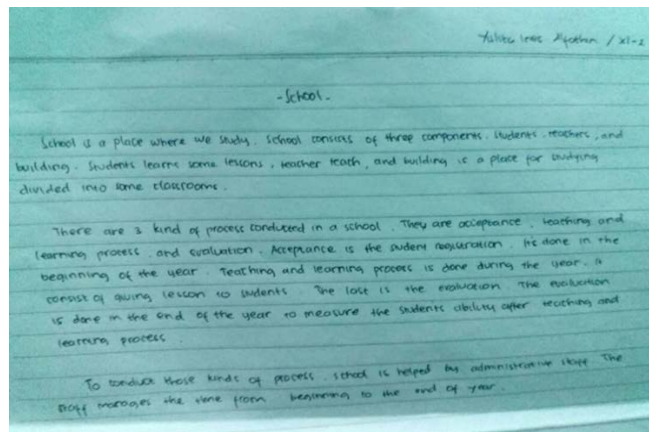 / XI-2
- School -
School is a place where we study. School consists of three components, students, teachers, and
building. Students learns some lessons, teacher teach, and building is a place for studying
divided into some classrooms.
There are 3 kind of process conducted in a school. They are acceptance, teaching and
learning process, and evaluation. Acceptance is the student registration. Its done in the
beginning of the year. Teaching and learning process is done during the year. It
consist of giving lesson to students. The last is the evaluation. The evaluation
is done in the end of the year to measure the students ability after teaching and
learning process.
To conduct those kinds of process, school is helped by administrative staff. The
staff manages the time from beginning to the end of year.